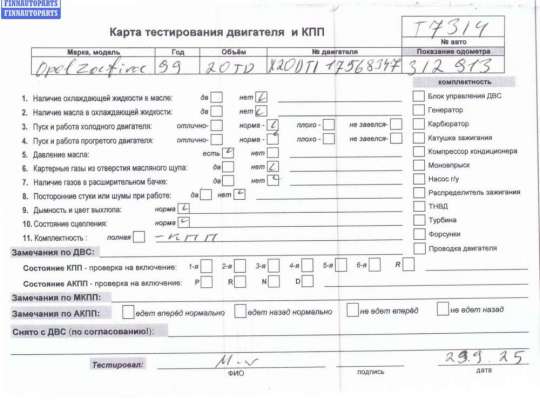 FINNAUTOPARTS
FINNAUTOPARTS
Карта тестирования двигателя и КПП
Т7314
№ авто
Марка, модель Год Объём № двигателя Показание одометра
Opel Zafira 99 20TD X20DTL 17568347 312 913
комплектность
1. Наличие охлаждающей жидкости в масле: да нет
2. Наличие масла в охлаждающей жидкости: да нет
3. Пуск и работа холодного двигателя: отлично- норма - плохо - не завелся-
4. Пуск и работа прогретого двигателя: отлично- норма - плохо - не завелся-
5. Давление масла: есть нет
6. Картерные газы из отверстия масляного щупа: да нет
7. Наличие газов в расширительном бачке: да нет
8. Посторонние стуки или шумы при работе: да нет
9. Дымность и цвет выхлопа: норма
10. Состояние сцепления: норма
11. Комплектность : полная - КПП
Блок управления ДВС
Генератор
Карбюратор
Катушка зажигания
Компрессор кондиционера
Моновпрыск
Насос г/у
Распределитель зажигания
ТНВД
Турбина
Форсунки
Проводка двигателя
Замечания по ДВС:
Состояние КПП - проверка на включение: 1-я 2-я 3-я 4-я 5-я 6-я R
Состояние АКПП - проверка на включение: P R N D
Замечания по МКПП:
Замечания по АКПП: едет вперёд нормально едет назад нормально не едет вперёд не едет назад
Снято с ДВС (по согласованию!):
Тестировал: 29.9.25
ФИО подпись дата